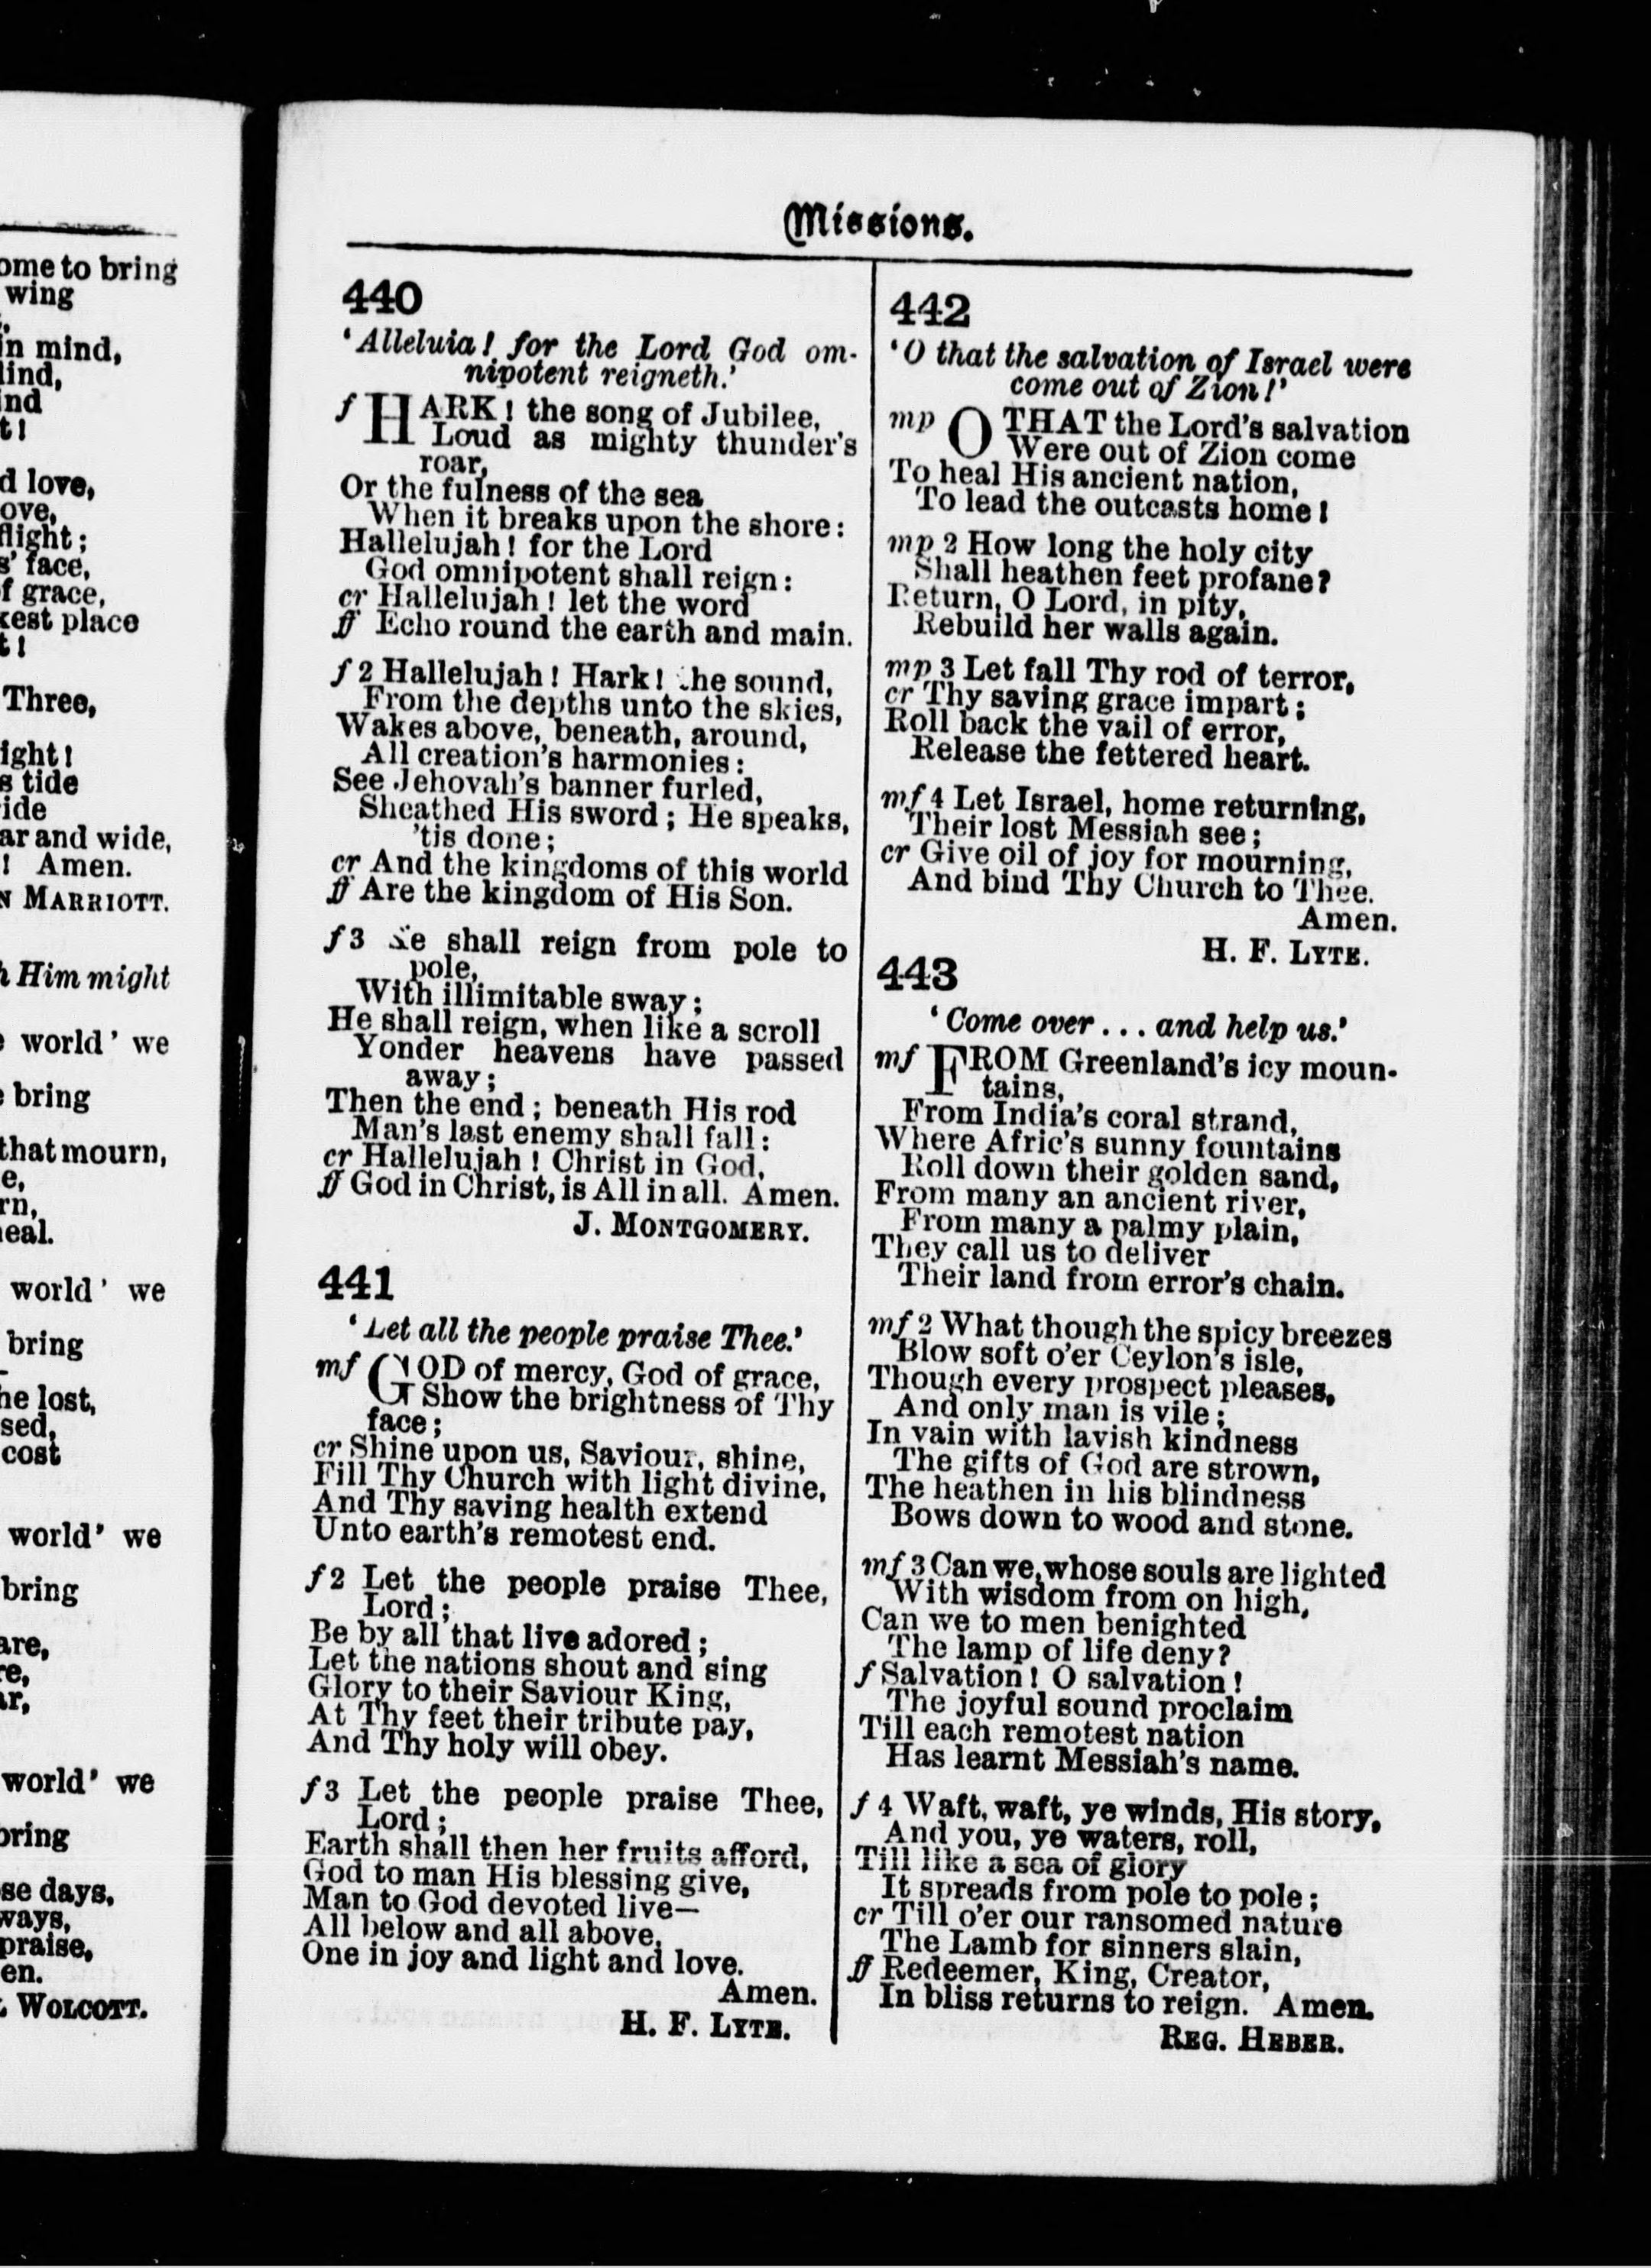 ome to bring
wing
in mind,
lind,
ind
t!
d love,
ove,
flight;
s' face,
f grace,
kest place
t!
Three,
ight!
s tide
ide
ar and wide,
! Amen.
N MARRIOTT.
h Him might
world' we
bring
that mourn,
e,
rn,
eal.
world' we
bring
he lost,
sed,
cost
world' we
bring
are,
re,
ar,
world' we
bring
se days,
ways,
praise,
en.
WOLCOTT.
Missions.
440
'Alleluia! for the Lord God om-
nipotent reigneth.'
f HARK! the song of Jubilee,
Loud as mighty thunder's
roar,
Or the fulness of the sea
When it breaks upon the shore:
Hallelujah! for the Lord
God omnipotent shall reign:
cr Hallelujah! let the word
ff Echo round the earth and main.
f 2 Hallelujah! Hark! the sound,
From the depths unto the skies,
Wakes above, beneath, around,
All creation's harmonies:
See Jehovah's banner furled,
Sheathed His sword; He speaks,
'tis done;
cr And the kingdoms of this world
ff Are the kingdom of His Son.
f 3 He shall reign from pole to
pole,
With illimitable sway;
He shall reign, when like a scroll
Yonder heavens have passed
away;
Then the end; beneath His rod
Man's last enemy shall fall:
cr Hallelujah! Christ in God,
ff God in Christ, is All in all. Amen.
J. MONTGOMERY.
441
'Let all the people praise Thee.'
mf GOD of mercy, God of grace,
Show the brightness of Thy
face;
cr Shine upon us, Saviour, shine,
Fill Thy Church with light divine,
And Thy saving health extend
Unto earth's remotest end.
f 2 Let the people praise Thee,
Lord;
Be by all that live adored;
Let the nations shout and sing
Glory to their Saviour King,
At Thy feet their tribute pay,
And Thy holy will obey.
f 3 Let the people praise Thee,
Lord;
Earth shall then her fruits afford,
God to man His blessing give,
Man to God devoted live—
All below and all above,
One in joy and light and love.
Amen.
H. F. LYTE.
442
'O that the salvation of Israel were
come out of Zion!'
mp O THAT the Lord's salvation
Were out of Zion come
To heal His ancient nation,
To lead the outcasts home!
mp 2 How long the holy city
Shall heathen feet profane?
Return, O Lord, in pity,
Rebuild her walls again.
mp 3 Let fall Thy rod of terror,
cr Thy saving grace impart;
Roll back the vail of error,
Release the fettered heart.
mf 4 Let Israel, home returning,
Their lost Messiah see;
cr Give oil of joy for mourning,
And bind Thy Church to Thee.
Amen.
H. F. LYTE.
443
'Come over ... and help us.'
mf FROM Greenland's icy moun-
tains,
From India's coral strand,
Where Afric's sunny fountains
Roll down their golden sand,
From many an ancient river,
From many a palmy plain,
They call us to deliver
Their land from error's chain.
mf 2 What though the spicy breezes
Blow soft o'er Ceylon's isle,
Though every prospect pleases,
And only man is vile;
In vain with lavish kindness
The gifts of God are strown,
The heathen in his blindness
Bows down to wood and stone.
mf 3 Can we, whose souls are lighted
With wisdom from on high,
Can we to men benighted
The lamp of life deny?
f Salvation! O salvation!
The joyful sound proclaim
Till each remotest nation
Has learnt Messiah's name.
f 4 Waft, waft, ye winds, His story,
And you, ye waters, roll,
Till like a sea of glory
It spreads from pole to pole;
cr Till o'er our ransomed nature
The Lamb for sinners slain,
ff Redeemer, King, Creator,
In bliss returns to reign. Amen.
REG. HEBER.